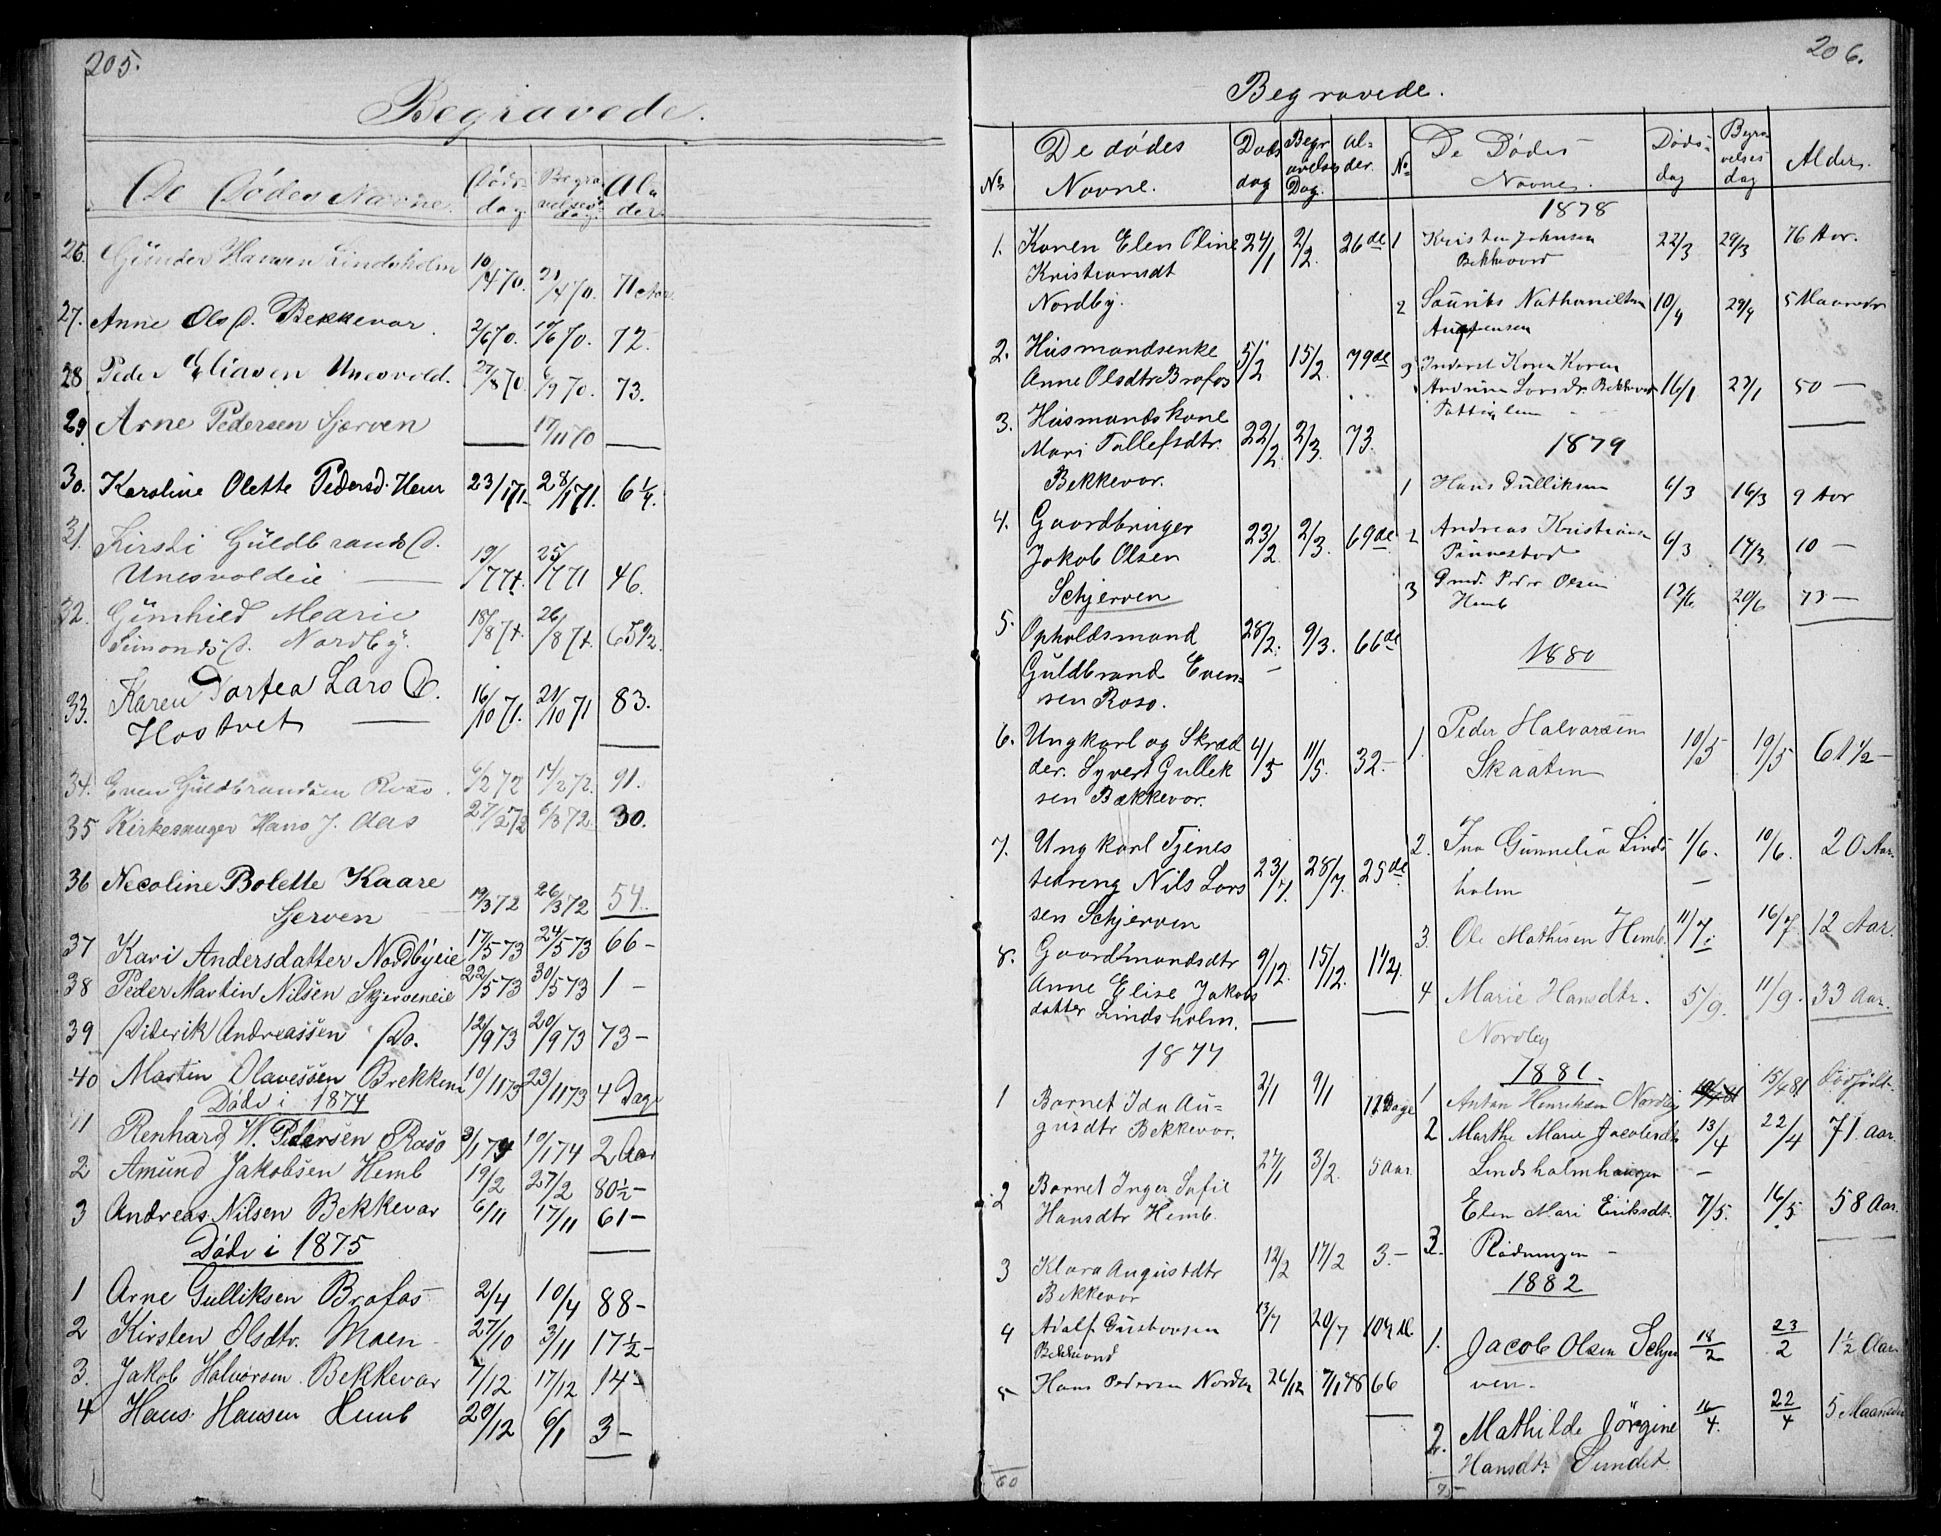 205.
Begravede.
De Dødes Navne. Døds dag. Begravelses dag. Alder
26. Günder Hansen Lindsholm 10/4 70. 21/4 70. 71 Aar
27. Anne Ols D. Bekkevar. 2/6 70. 10/6 70. 72.
28 Peder Eliasen Unesvold. 27/8 70. 6/9 70. 73.
29 Arne Pedersen Sjerven — 17/11 70 —
30. Karsline Olette Pedersd. Hem 23/1 71. 28/1 71. 6 1/4.
31. Kirsti Güldbrands D.
Unesvoldeie — 19/7 71. 25/7 71 46.
32. Günhild Marie
Simonds D. Nordby. 18/8 71. 26/8 71. 65 1/2.
33. Karen Dortea Lars D.
Hostvet — 16/10 71. 21/10 71 83.
34. Even Güldbrandsen Roso. 6/2 72 14/2 72. 91.
35 Kirkesanger Hans J. Aas 27/2 72 6/3 72. 30.
36 Necoline Bolette Kaare
Sjerven 19/3 72 26/3 72 54.
37 Kari Andersdatter Nordbyeie 17/5 73 24/5 73 66 -
38 Peder Martin Nilsen Skjerveneie 22/5 73 30/5 73 1 -
39 Diderik Andreassen Do. 12/9 73 20/9 73 73 -
40 Martin Olavessen Brekken 10/11 73 23/11 73 4 Dage
Døde i 1874
1 Renhard W. Pedersen Roso 3/1 74 10/1 74 2 Aar
2 Amund Jakobsen Hemb 19/2 27/2 80 1/2 -
3 Andreas Nilsen Bekkevar 6/11 17/11 61 -
Døde i 1875
1 Arne Gulliksen Brofos 2/4 10/4 88 -
2 Kirsten Olsdtr. Moen 27/10 3/11 17 1/2 -
3. Jakob Halvorsen Bekkevar 7/12 17/12 14 -
4 Hans Hansen Hemb 29/12 6/1 3 -
206.
Begravede.
No De dødes Navne. Døds dag Begravelses Dag. Alder.
1. Karen Elen Oline 24/1 2/2. 26 de
Kristiansdt
Nordby.
2. Husmandsenke 5/2 15/2. 79 de
Anne Olsdtr Brofos
3. Husmandskone
Mari Tollefsdtr. 22/2 2/3. 73.
Bekkevar.
4. Gaardbruger
Jakob Olsen 23/2. 2/3. 69 de
Schjerven
5. Opholdsmand 28/2. 9/3. 66 de
Guldbrand Even-
sen Roso.
6. Ungkarl og Skræd 4/5 11/5. 32 -
der. Syvert Gullek
sen Bækkevar.
7. Ungkarl Tjenes
tedreng Nils Lars 23/7. 28/7. 25 de
sen Schjerven
8. Gaardmandsdtr 9/12. 15/12. 1 1/4
Anne Elise Jakobs
datter Lindsholm.
1877
1 Barnet Ida Au- 2/1 9/1 Dage
gusdtr Bekkevar.
2 Barnet Inger Sofie 27/1 3/2. 5 Aar.
Hansdtr Hemb.
3 Klara Augustdtr 12/2 17/2 3. -
Bekkevar
4 Adolf Gustavsen 13/7 20/7
5 Hans Pedersen Nordby 26/12 7/1 78 66
60
No De Dødes Navne. Døds- dag Begravelses dag Alder.
1878
1 Kristen Johnsen 22/3 29/3 76 Aar.
Bekkevar
2 Nathanielsen 10/4 29/4 5 Maaneder
3 Karen 16/1 27/1 50 —
1879
1 Hans Gulliksen 6/3 16/3 9 Aar
2 Andreas Kristians 6/3 14/3 10 —
3 Gmd. Peder Olsen 13/6 20/6 73 —
Hemb
1880
1. Peder Halvarsen 10/5 19/5 61 1/2 -
Skaaten
2. Ina Gunnelia Linds 1/6. 10/6. 20 Aar.
holm
3. Ole Mathisen Hemb. 11/7. 16/7 12 Aar.
4 Marie Hansdtr. 5/9. 11/9. 33 Aar.
Nordby
1881.
1 Anton Henriksen Nordby 15/4 81 Dødfødt
2 Marthe Marie Jacobsdtr 13/4 22/4 71. Aar
Lindsholmhaugen
3. Elen Mari Eriksdtr. 7/5. 16/5 58 Aar.
Rødningen -
1882
1. Jacob Olsen Schjer 18/2 23/2 1 1/2 Aar
ven.
2. Mathilde Jörgine 16/4. 22/4 5 Maaneder
Hansdtr. Sundet.
75